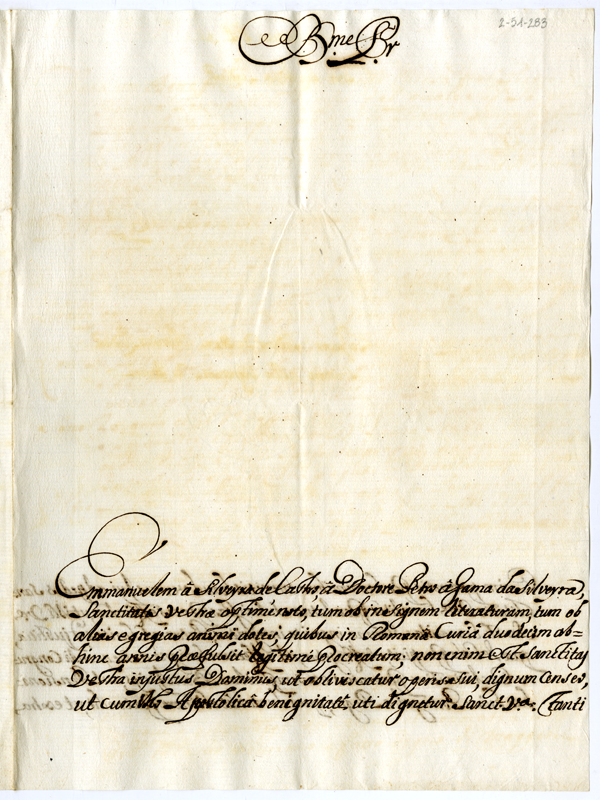 2-51-283
Bme Pr
Emmanuelem à Silveyra de Castro, à Doctore Petro à Gama da Silveyra,
Sanctitatis Vestræ optime noto, tum ob insignem literaturam, tum ob
alias egregias animi dotes, quibus in Romana Curiâ duodecim ab=
hinc annis præfulsit legitime procreatum; non enim est Sanctitas
Vestra injustus Dominus, ut obliviscatur operis sui dignum censeo,
ut cum illo Apostolicâ benignitate, uti dignetur Sanct. Vª. Tanti